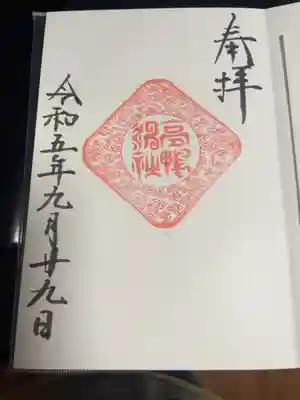 奉拝
高鴨神社
令和五年九月廿九日